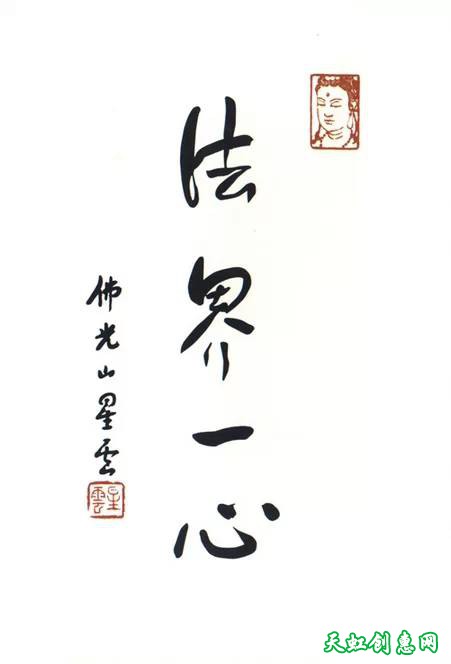 法界一心
佛光山星雲
星雲
天虹创意网